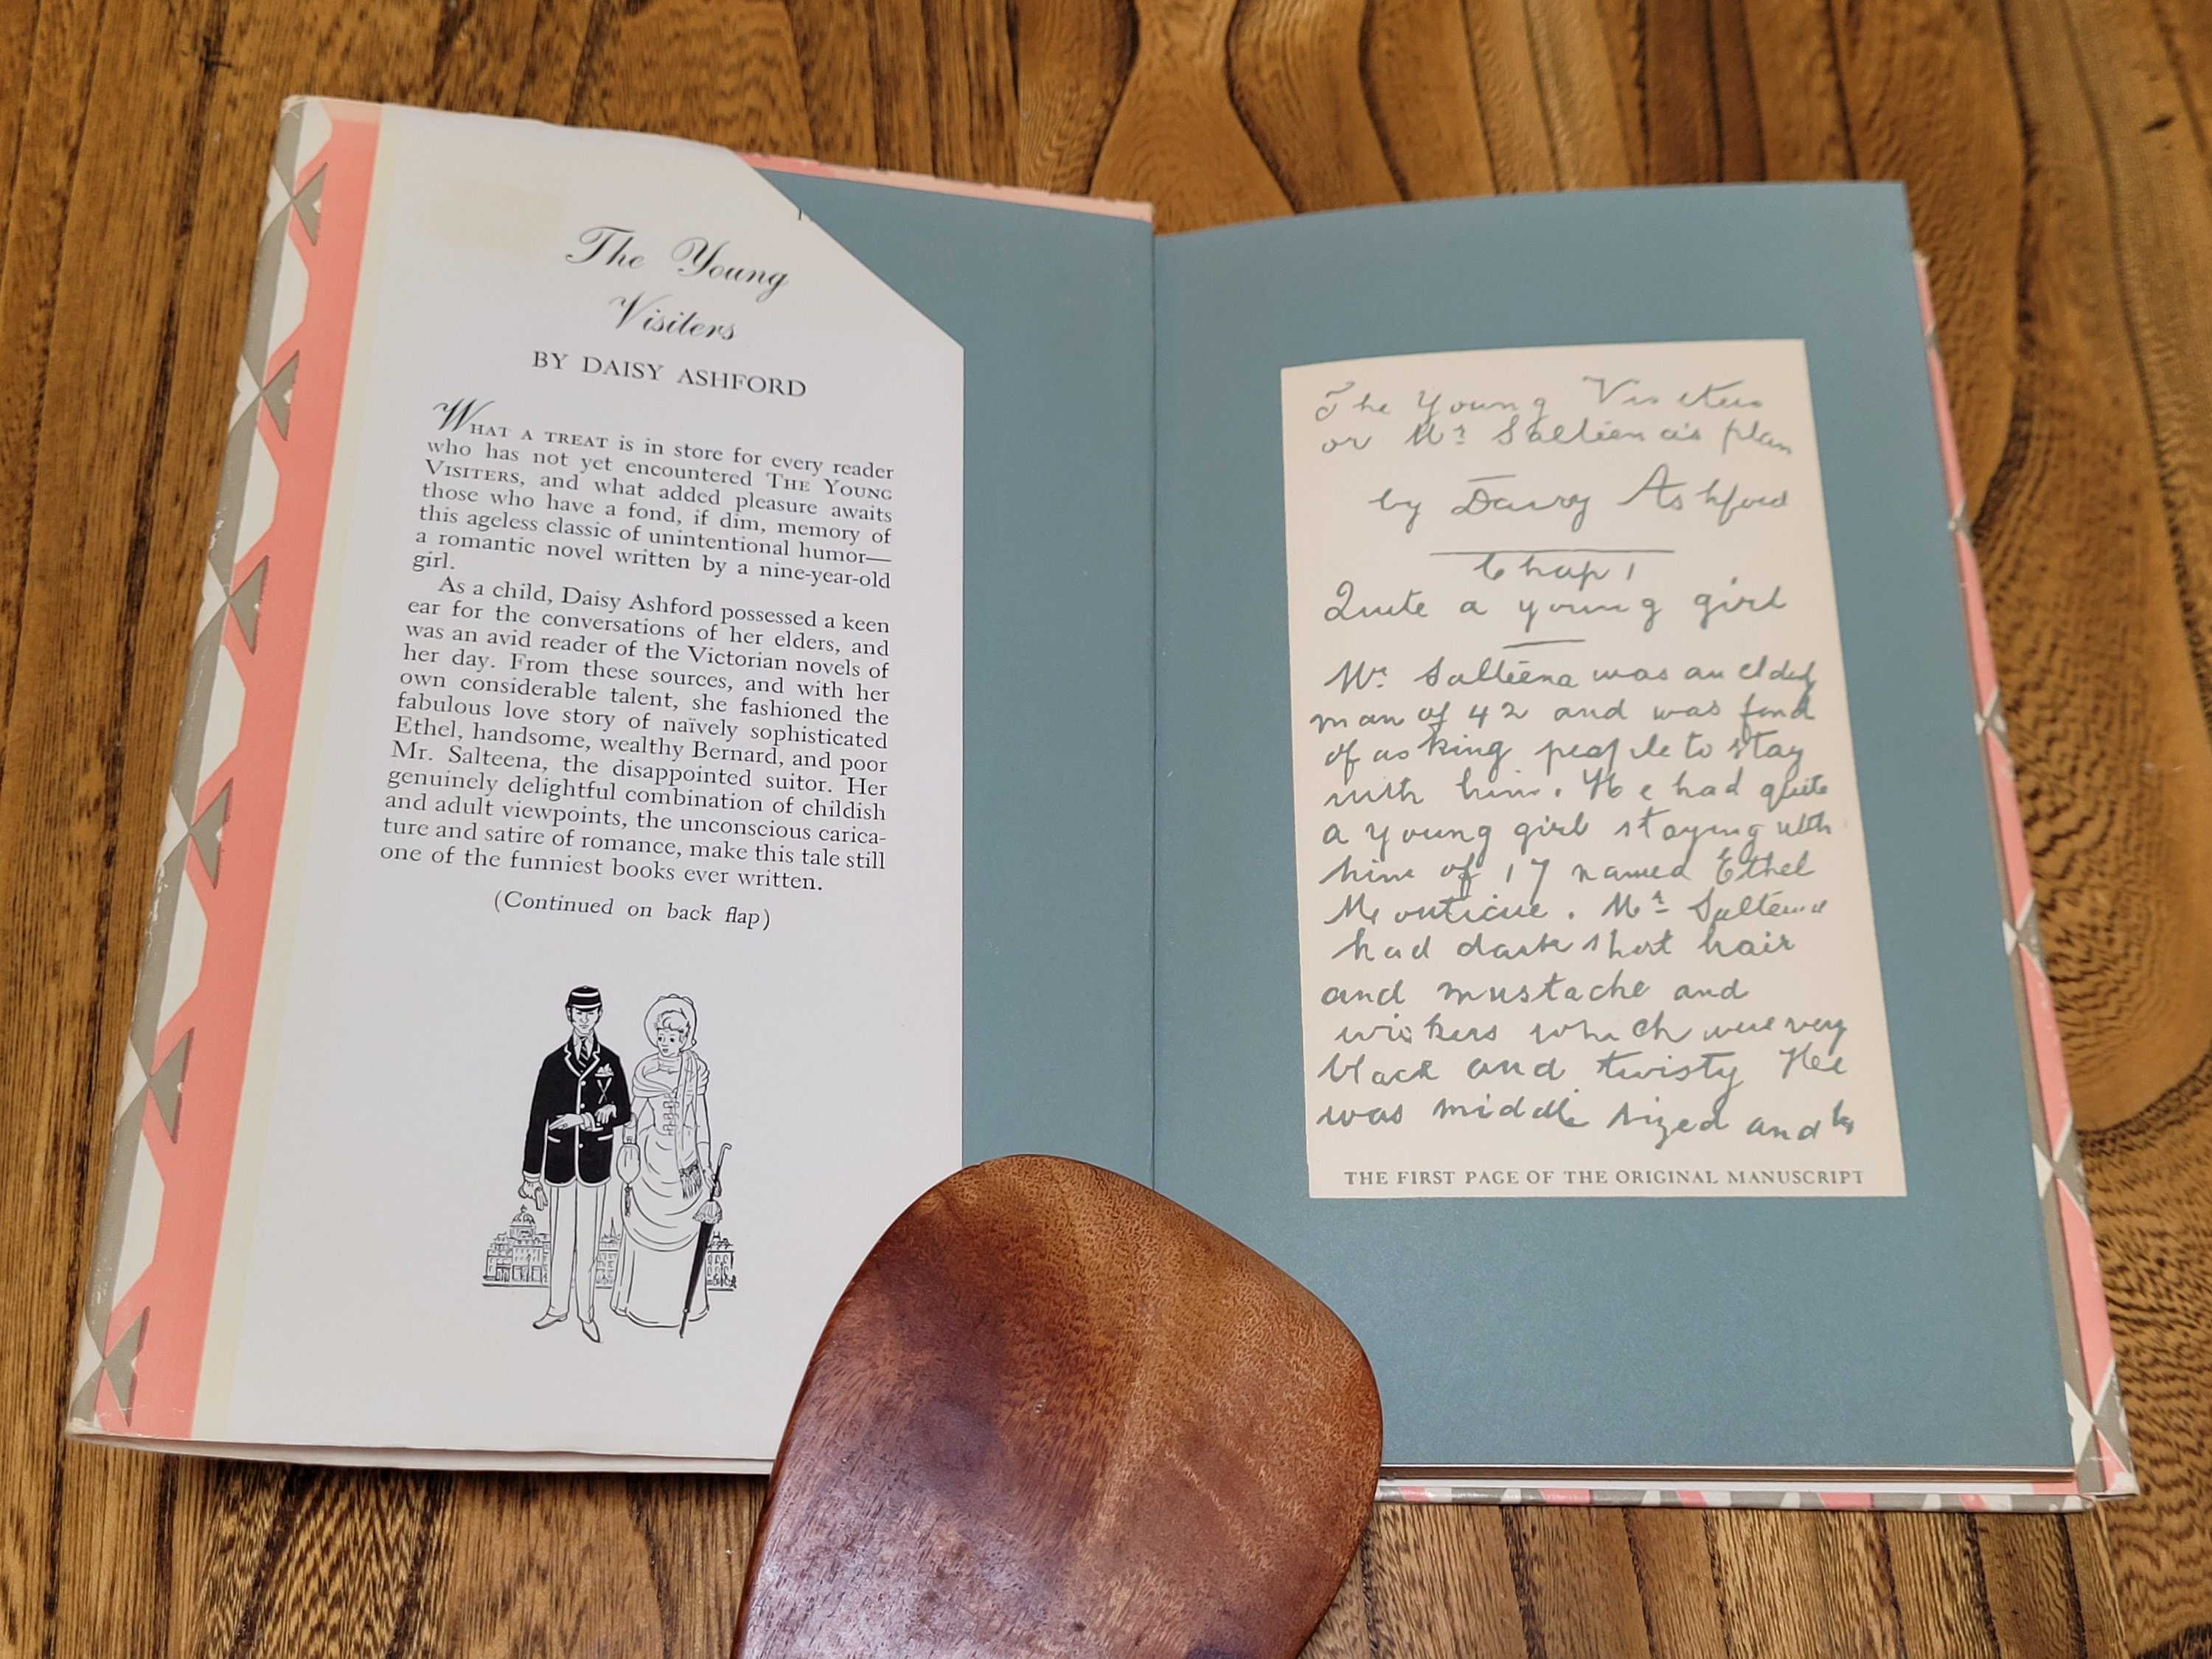 The Young
Visiters
BY DAISY ASHFORD
WHAT A TREAT is in store for every reader
who has not yet encountered THE YOUNG
VISITERS, and what added pleasure awaits
those who have a fond, if dim, memory of
this ageless classic of unintentional humor—
a romantic novel written by a nine-year-old
girl.
As a child, Daisy Ashford possessed a keen
ear for the conversations of her elders, and
was an avid reader of the Victorian novels of
her day. From these sources, and with her
own considerable talent, she fashioned the
fabulous love story of naïvely sophisticated
Ethel, handsome, wealthy Bernard, and poor
Mr. Salteena, the disappointed suitor. Her
genuinely delightful combination of childish
and adult viewpoints, the unconscious carica-
ture and satire of romance, make this tale still
one of the funniest books ever written.
(Continued on back flap)
The Young Visiters
or Mr Salteena's plan
by Daisy Ashford
Chap 1
Quite a young girl
Mr Salteena was an elderly
man of 42 and was fond
of asking people to stay
with him. He had quite
a young girl staying with
him of 17 named Ethel
Monticue. Mr Salteena
had dark short hair
and mustache and
wiskers which were very
black and twisty He
was middle sized and he
THE FIRST PAGE OF THE ORIGINAL MANUSCRIPT